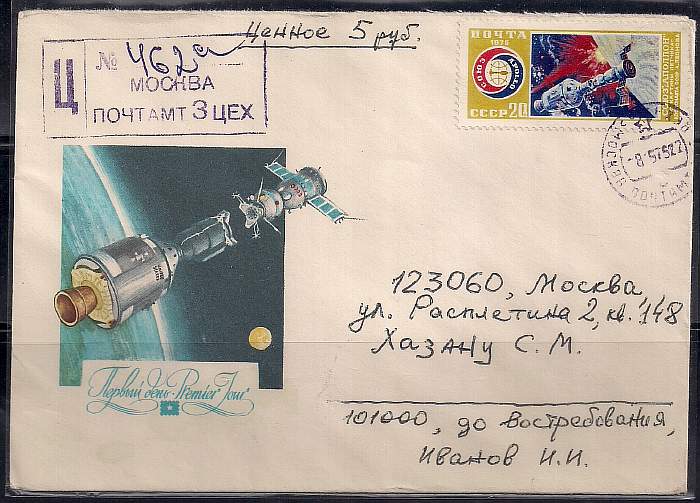 Ценное 5 руб.
№ 462а
Ц
МОСКВА
ПОЧТАМТ 3 ЦЕХ
ПОЧТА
1975
СОЮЗ АПОЛЛОН
СОЮЗ APOLLO
СССР 20
МОСКВА ПОЧТАМТ
Первый день · Premier Jour
123060, Москва
ул. Расплетина 2, кв. 148
Хазану С. М.
101000, до востребования,
Иванов И.И.